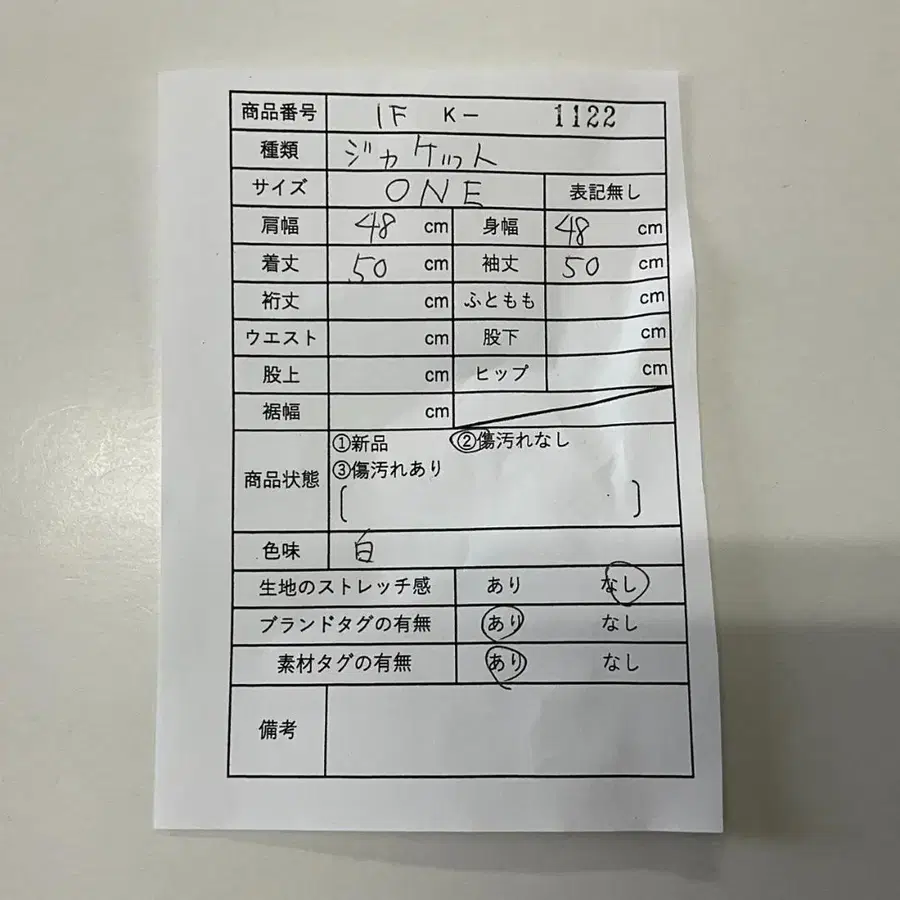 商品番号 1F K- 1122
種類 ジャケット
サイズ ONE 表記無し
肩幅 48 cm 身幅 48 cm
着丈 50 cm 袖丈 50 cm
裄丈 cm ふともも cm
ウエスト cm 股下 cm
股上 cm ヒップ cm
裾幅 cm
①新品 ②傷汚れなし
商品状態 ③傷汚れあり
[ ]
色味 白
生地のストレッチ感 あり なし
ブランドタグの有無 あり なし
素材タグの有無 あり なし
備考